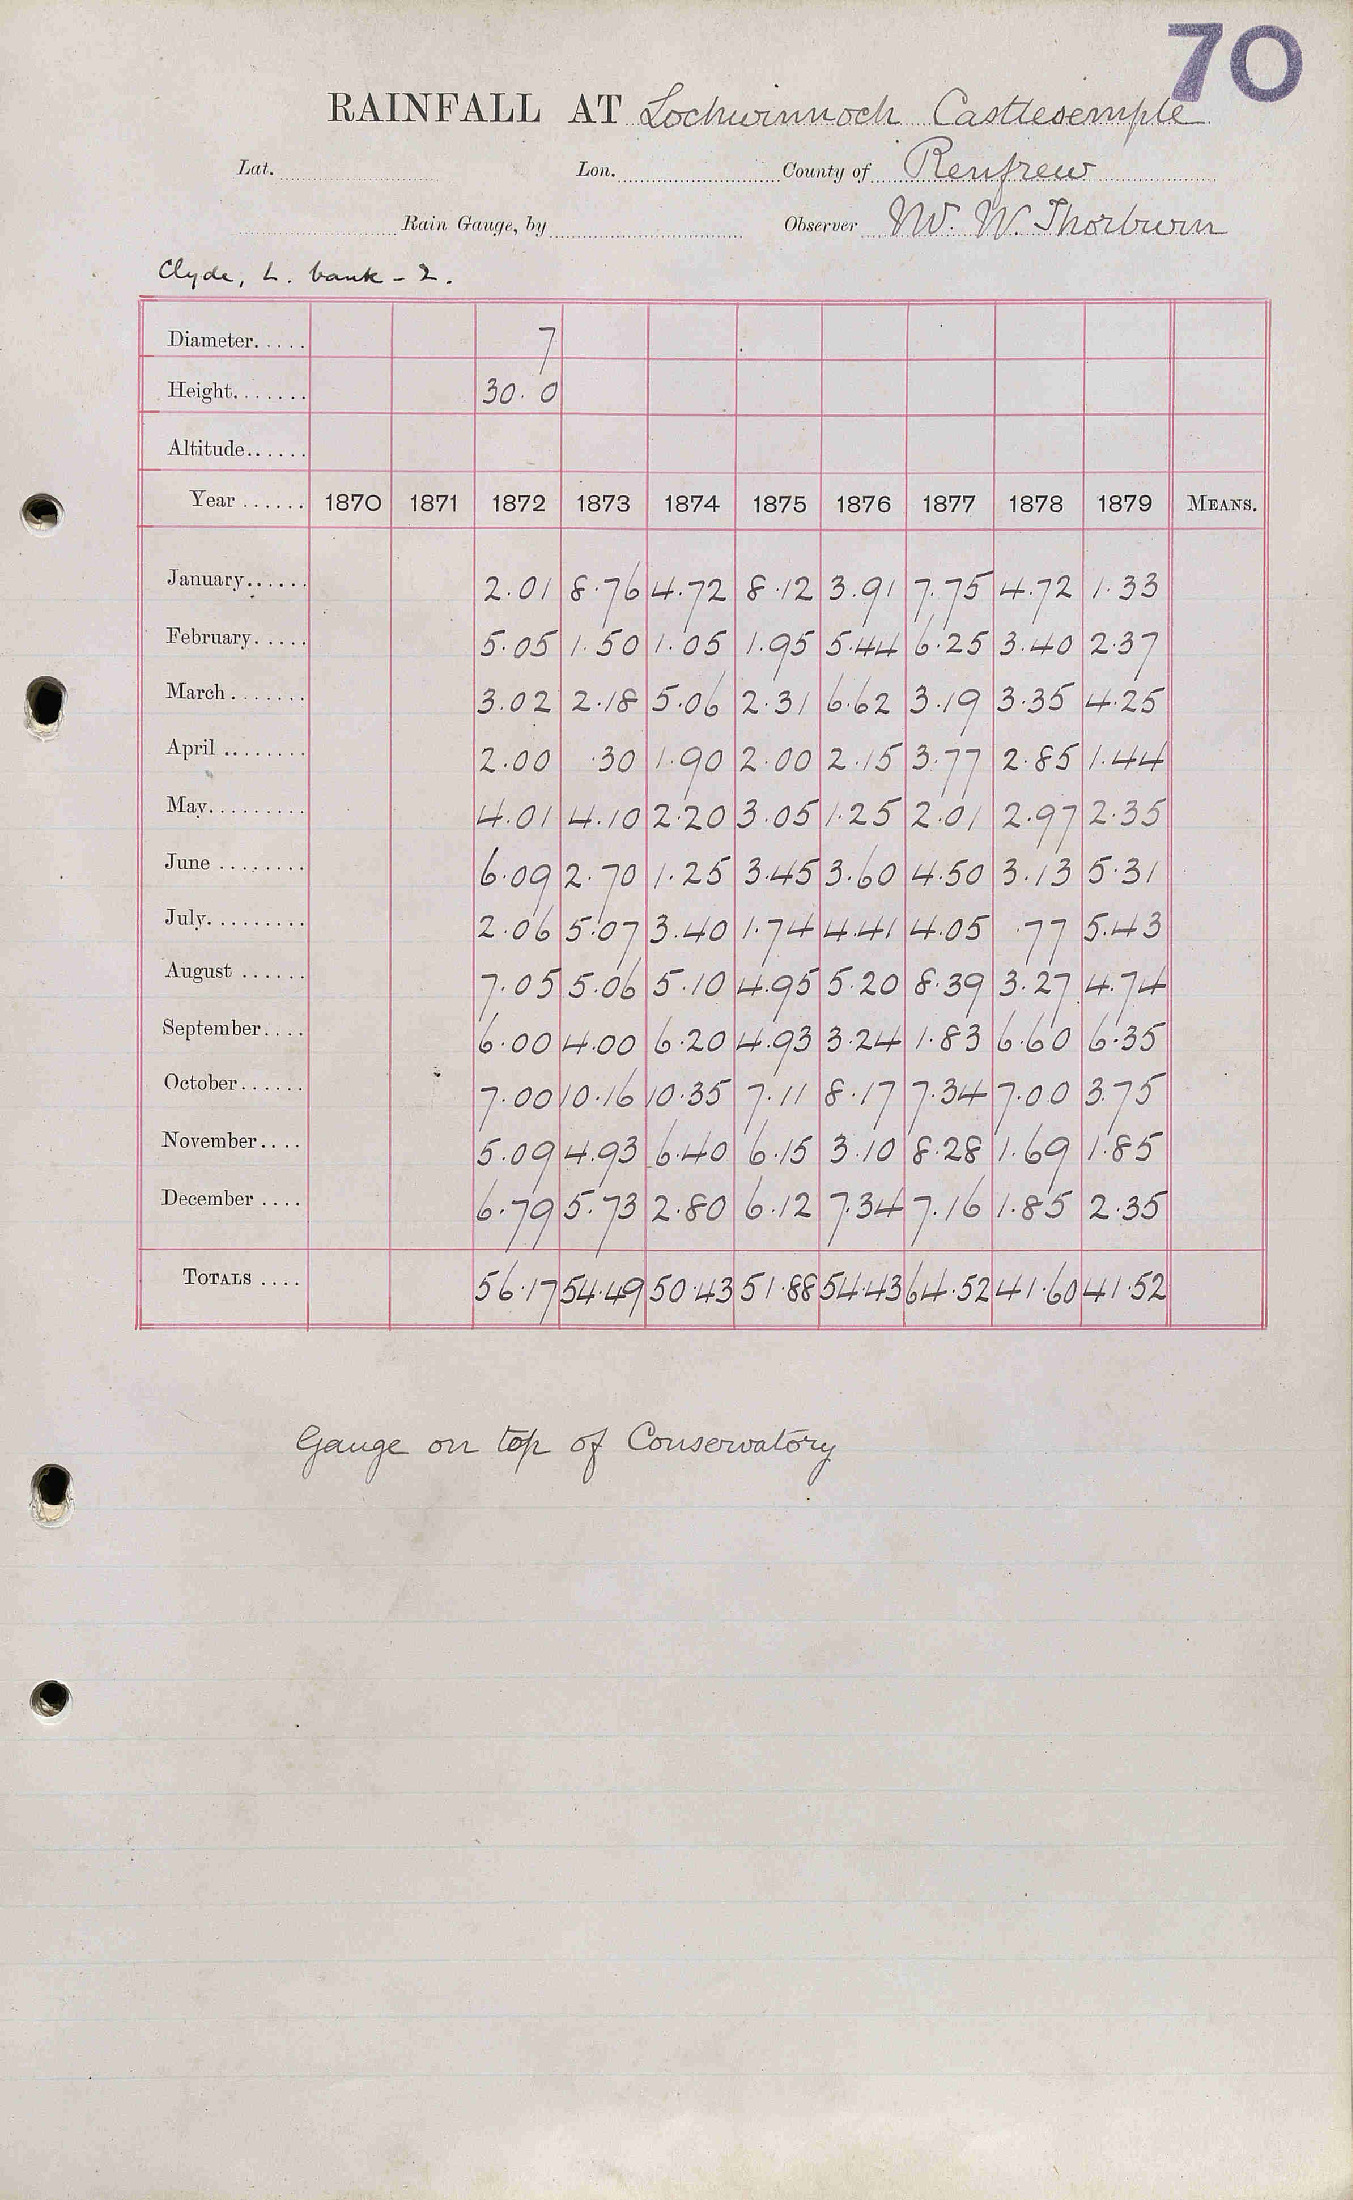 70
RAINFALL AT Lochwinnoch Castlesemple
Lat. Lon. County of Renfrew
Rain Gauge, by Observer W. W. Thorburn
Clyde, L. bank - 2.
Diameter..... 7
Height....... 30.0
Altitude......
Year ...... 1870 1871 1872 1873 1874 1875 1876 1877 1878 1879 MEANS.
January...... 2.01 8.76 4.72 8.12 3.91 7.75 4.72 1.33
February..... 5.05 1.50 1.05 1.95 5.44 6.25 3.40 2.37
March....... 3.02 2.18 5.06 2.31 6.62 3.19 3.35 4.25
April ........ 2.00 .30 1.90 2.00 2.15 3.77 2.85 1.44
May......... 4.01 4.10 2.20 3.05 1.25 2.01 2.97 2.35
June ........ 6.09 2.70 1.25 3.45 3.60 4.50 3.13 5.31
July......... 2.06 5.07 3.40 1.74 4.41 4.05 .77 5.43
August ...... 7.05 5.06 5.10 4.95 5.20 8.39 3.27 4.74
September.... 6.00 4.00 6.20 4.93 3.24 1.83 6.60 6.35
October...... 7.00 10.16 10.35 7.11 8.17 7.34 7.00 3.75
November.... 5.09 4.93 6.40 6.15 3.10 8.28 1.69 1.85
December .... 6.79 5.73 2.80 6.12 7.34 7.16 1.85 2.35
TOTALS .... 56.17 54.49 50.43 51.88 54.43 64.52 41.60 41.52
Gauge on top of Conservatory